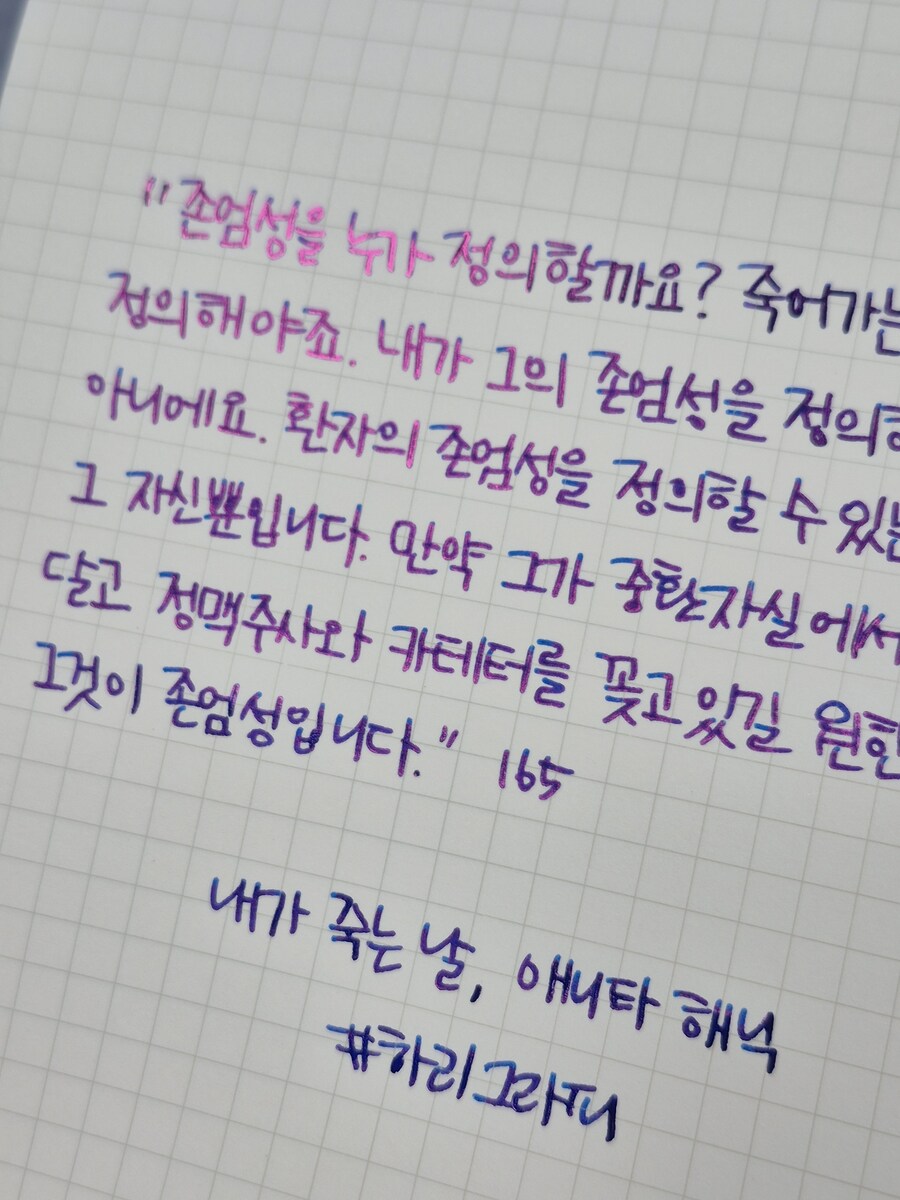 "존엄성을 누가 정의할까요? 죽어가는
정의해야죠. 내가 그의 존엄성을
아니에요. 환자의 존엄성을 정의할 수 있는
그 자신뿐입니다. 만약 그가 중환자실에서
달고 정맥주사와 카테터를 꽂고 있길
그것이 존엄성입니다." 165
내가 죽는 날, 애니타 해닉
#하리그라피